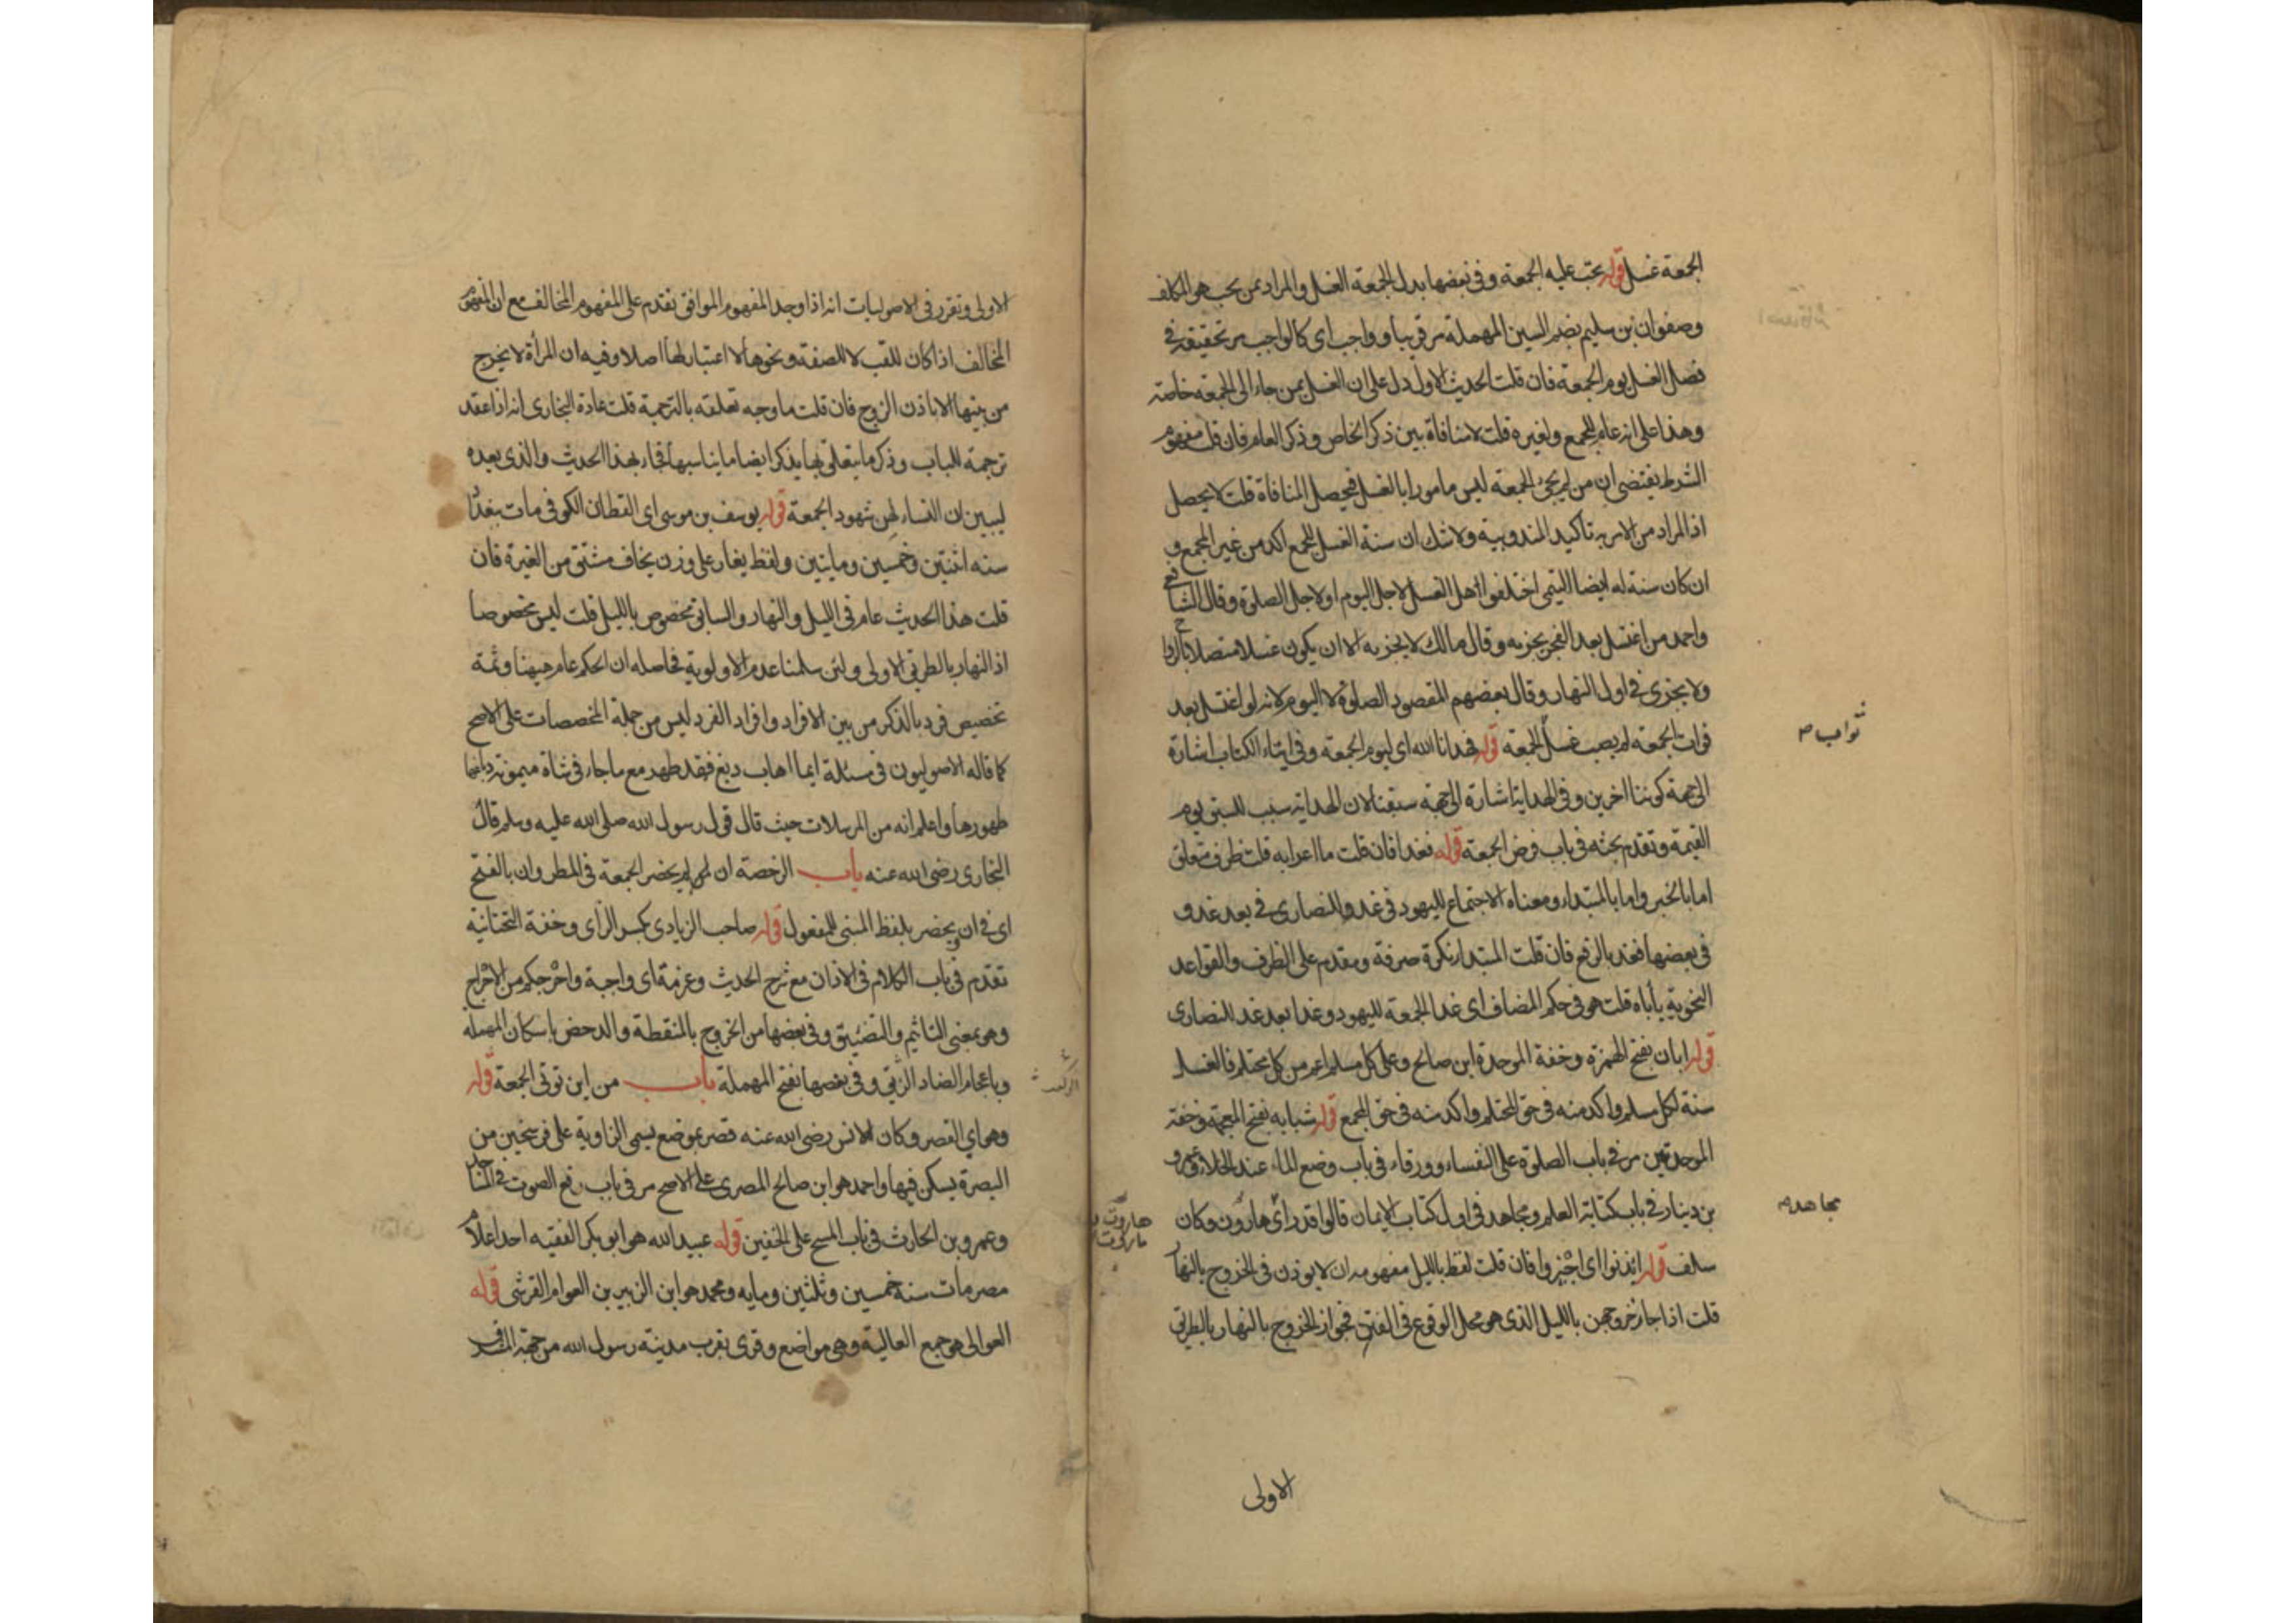 الجمعة غسل قوله يجب عليه الجمعة وفي بعضها بدل الجمعة الغسل والمراد بمن يجب هو المكلف
وصفوان بن سليم بضم السين المهملة مر قريبا وواجب اى كالواجب مر تحقيقه في
فضل الغسل يوم الجمعة فان قلت الحديث الاول دل على ان الغسل لمن جاء الى الجمعة خاصة
وهذا على انه عام للمجمع ولغيره قلت لا منافاة بين ذكر الخاص وذكر العام فان قلت مفهوم
الشرط يقتضى ان من لم يجئ الجمعة ليس مامورا بالغسل فيحصل المنافاة قلت لا يحصل
اذ المراد من الامر به تاكيد المندوبية ولا شك ان سنة الغسل للمجمع اكد من غير المجمع و
ان كان سنة له ايضا التيمى اختلفوا هل الغسل لاجل اليوم او لاجل الصلوة وقال الشافعي
واحمد من اغتسل بعد الفجر يجزيه وقال مالك لا يجزيه الا ان يكون غسلا متصلا بالرواح
ولا يجزى في اول النهار وقال بعضهم المقصود الصلوة لا اليوم لانه لو اغتسل بعد
فوات الجمعة لم يصب غسل الجمعة قوله فهدانا الله اى ليوم الجمعة وفي ايتاء الكتاب اشارة
ثواب ص
الى جهة كوننا اخرين وفي الهداية اشارة الى جهة سبقنا لان الهداية سبب للسبق يوم
القيمة وتقدم بحثه في باب فرض الجمعة قوله فغدا فان قلت ما اعرابه قلت ظرف متعلق
اما بالخبر واما بالمبتداء ومعناه الاجتماع لليهود في غد وللنصارى في بعد غد و
في بعضها فغد بالرفع فان قلت المبتدا نكرة صرفة ومقدم على الظرف والقواعد
النحوية ياباه قلت هو في حكم المضاف اى غد الجمعة لليهود وغد بعد غد للنصارى
قوله ابان بفتح الهمزة وخفة الموحدة ابن صالح وعلى كل مسلم اعم من كل محتلم فالغسل
سنة لكل مسلم واكد منه في حق المحتلم واكد منه في حق المجمع قوله شبابه بفتح المعجمة وخفة
الموحدتين مر في باب الصلوة على النفساء وورقاء في باب وضع الماء عند الخلاء وعمرو
بن دينار في باب كتابة العلم ومجاهد في اول كتاب الايمان قالوا قد راى هاروت وكان
مجاهد م
هاروت و
ماروت
سلف قوله ائذنوا اى اجيزوا فان قلت لفظ بالليل مفهومه ان لا يوذن في الخروج بالنهار
قلت اذا جاز خروجهن بالليل الذى هو محل الوقوع في الفتن فجواز الخروج بالنهار بالطريق
الاولى
الاولى وتقرر في الاصوليات انه اذا وجد المفهوم الموافق تقدم على المفهوم المخالف مع ان المفهوم
المخالف اذا كان للقب لا للصفة ونحوها لا اعتبار لها اصلا وفيه ان المرأة لا يخرج
من بيتها الا باذن الزوج فان قلت ما وجه تعلقه بالترجمة قلت عادة البخارى انه اذا عقد
ترجمة للباب وذكر ما يتعلق بها يذكر ايضا ما يناسبها فجاء بهذا الحديث والذى بعده
ليبين ان النساء لهن شهود الجمعة قوله يوسف بن موسى اى القطان الكوفى مات ببغداد
سنه اثنتين وخمسين ومايتين ولفظ يغار على وزن يخاف مشتق من الغيرة فان
قلت هذا الحديث عام في الليل والنهار والسابق مخصوص بالليل قلت ليس مخصوصا
اذ النهار بالطريق الاولى ولئن سلمنا عدم الاولوية فحاصله ان الحكم عام ههنا وثمة
تخصيص فرد بالذكر من بين الافراد وافراد الفرد ليس من جملة المخصصات على الاصح
كما قاله الاصوليون في مسئلة ايما اهاب دبغ فقد طهر مع ما جاء في شاة ميمونة دباغها
طهورها واعلم انه من المرسلات حيث قال قول رسول الله صلى الله عليه وسلم قال
البخارى رضى الله عنه باب الرخصة ان لم يحضر الجمعة في المطر وان بالفتح
اى في ان ويحضر بلفظ المبنى للمفعول قوله صاحب الزيادى بكسر الزاى وخفة التحتانية
تقدم في باب الكلام في الاذان مع شرح الحديث وعزمة اى واجبة واحرجكم من الاحراج
وهو بمعنى التاثيم والتضييق وفي بعضها من الخروج بالمنقطة والدحض باسكان المهملة
وباعجام الضاد الزلق وفي بعضها بفتح المهملة باب من اين توتى الجمعة قوله
وهو اى القصر وكان لانس رضى الله عنه قصر بموضع يسمى الزاوية على فرسخين من
البصرة يسكن فيها واحمد هو ابن صالح المصرى على الاصح مر في باب رفع الصوت في المساجد
وعمرو بن الحارث في باب المسح على الخفين قوله عبيد الله هو ابو بكر الفقيه احد اعلام
مصر مات سنة خمسين وثلثين ومايه ومحمد هو ابن الزبير بن العوام القرشى قوله
العوالى هو جمع العالية وهى مواضع وقرى بقرب مدينة رسول الله من جهة المشرق